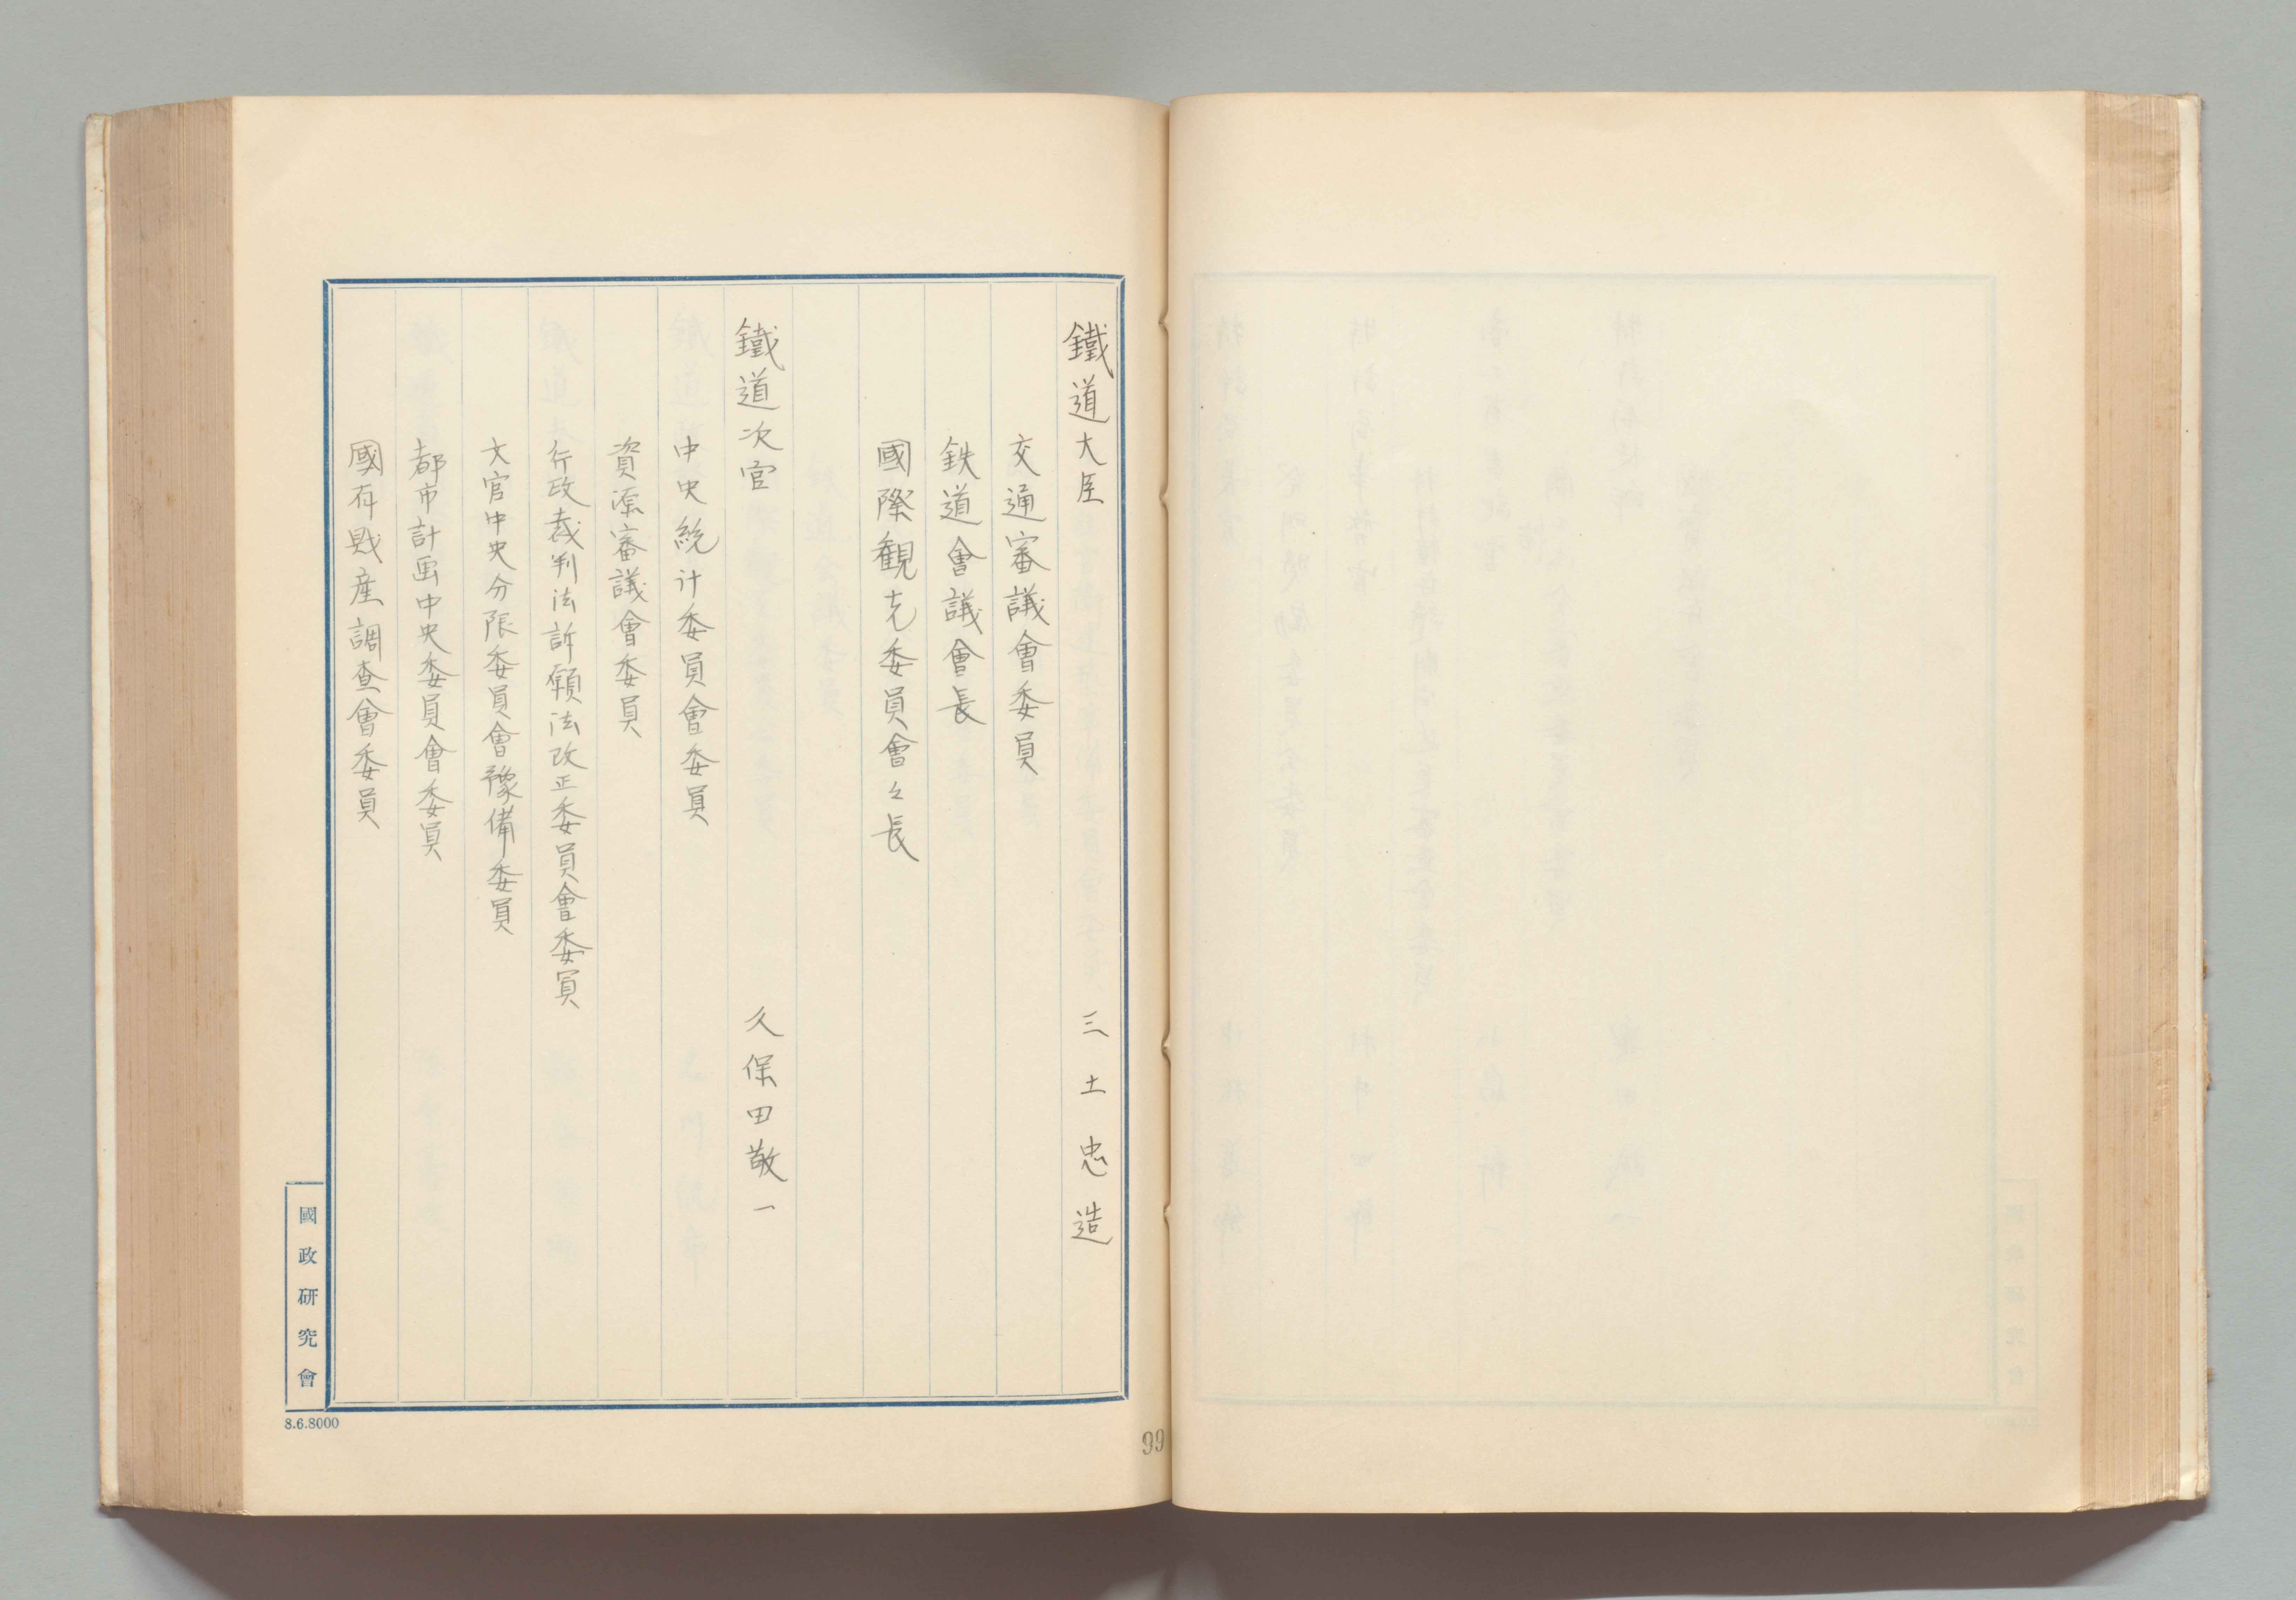 鐵道大臣 三土忠造
交通審議會委員
鉄道會議會長
國際観光委員會々長
鐵道次官 久保田敬一
中央統計委員會委員
資源審議會委員
行政裁判法訴願法改正委員會委員
文官中央分限委員會豫備委員
都市計画中央委員會委員
國有財産調査會委員
國政研究會
8.6.8000
99